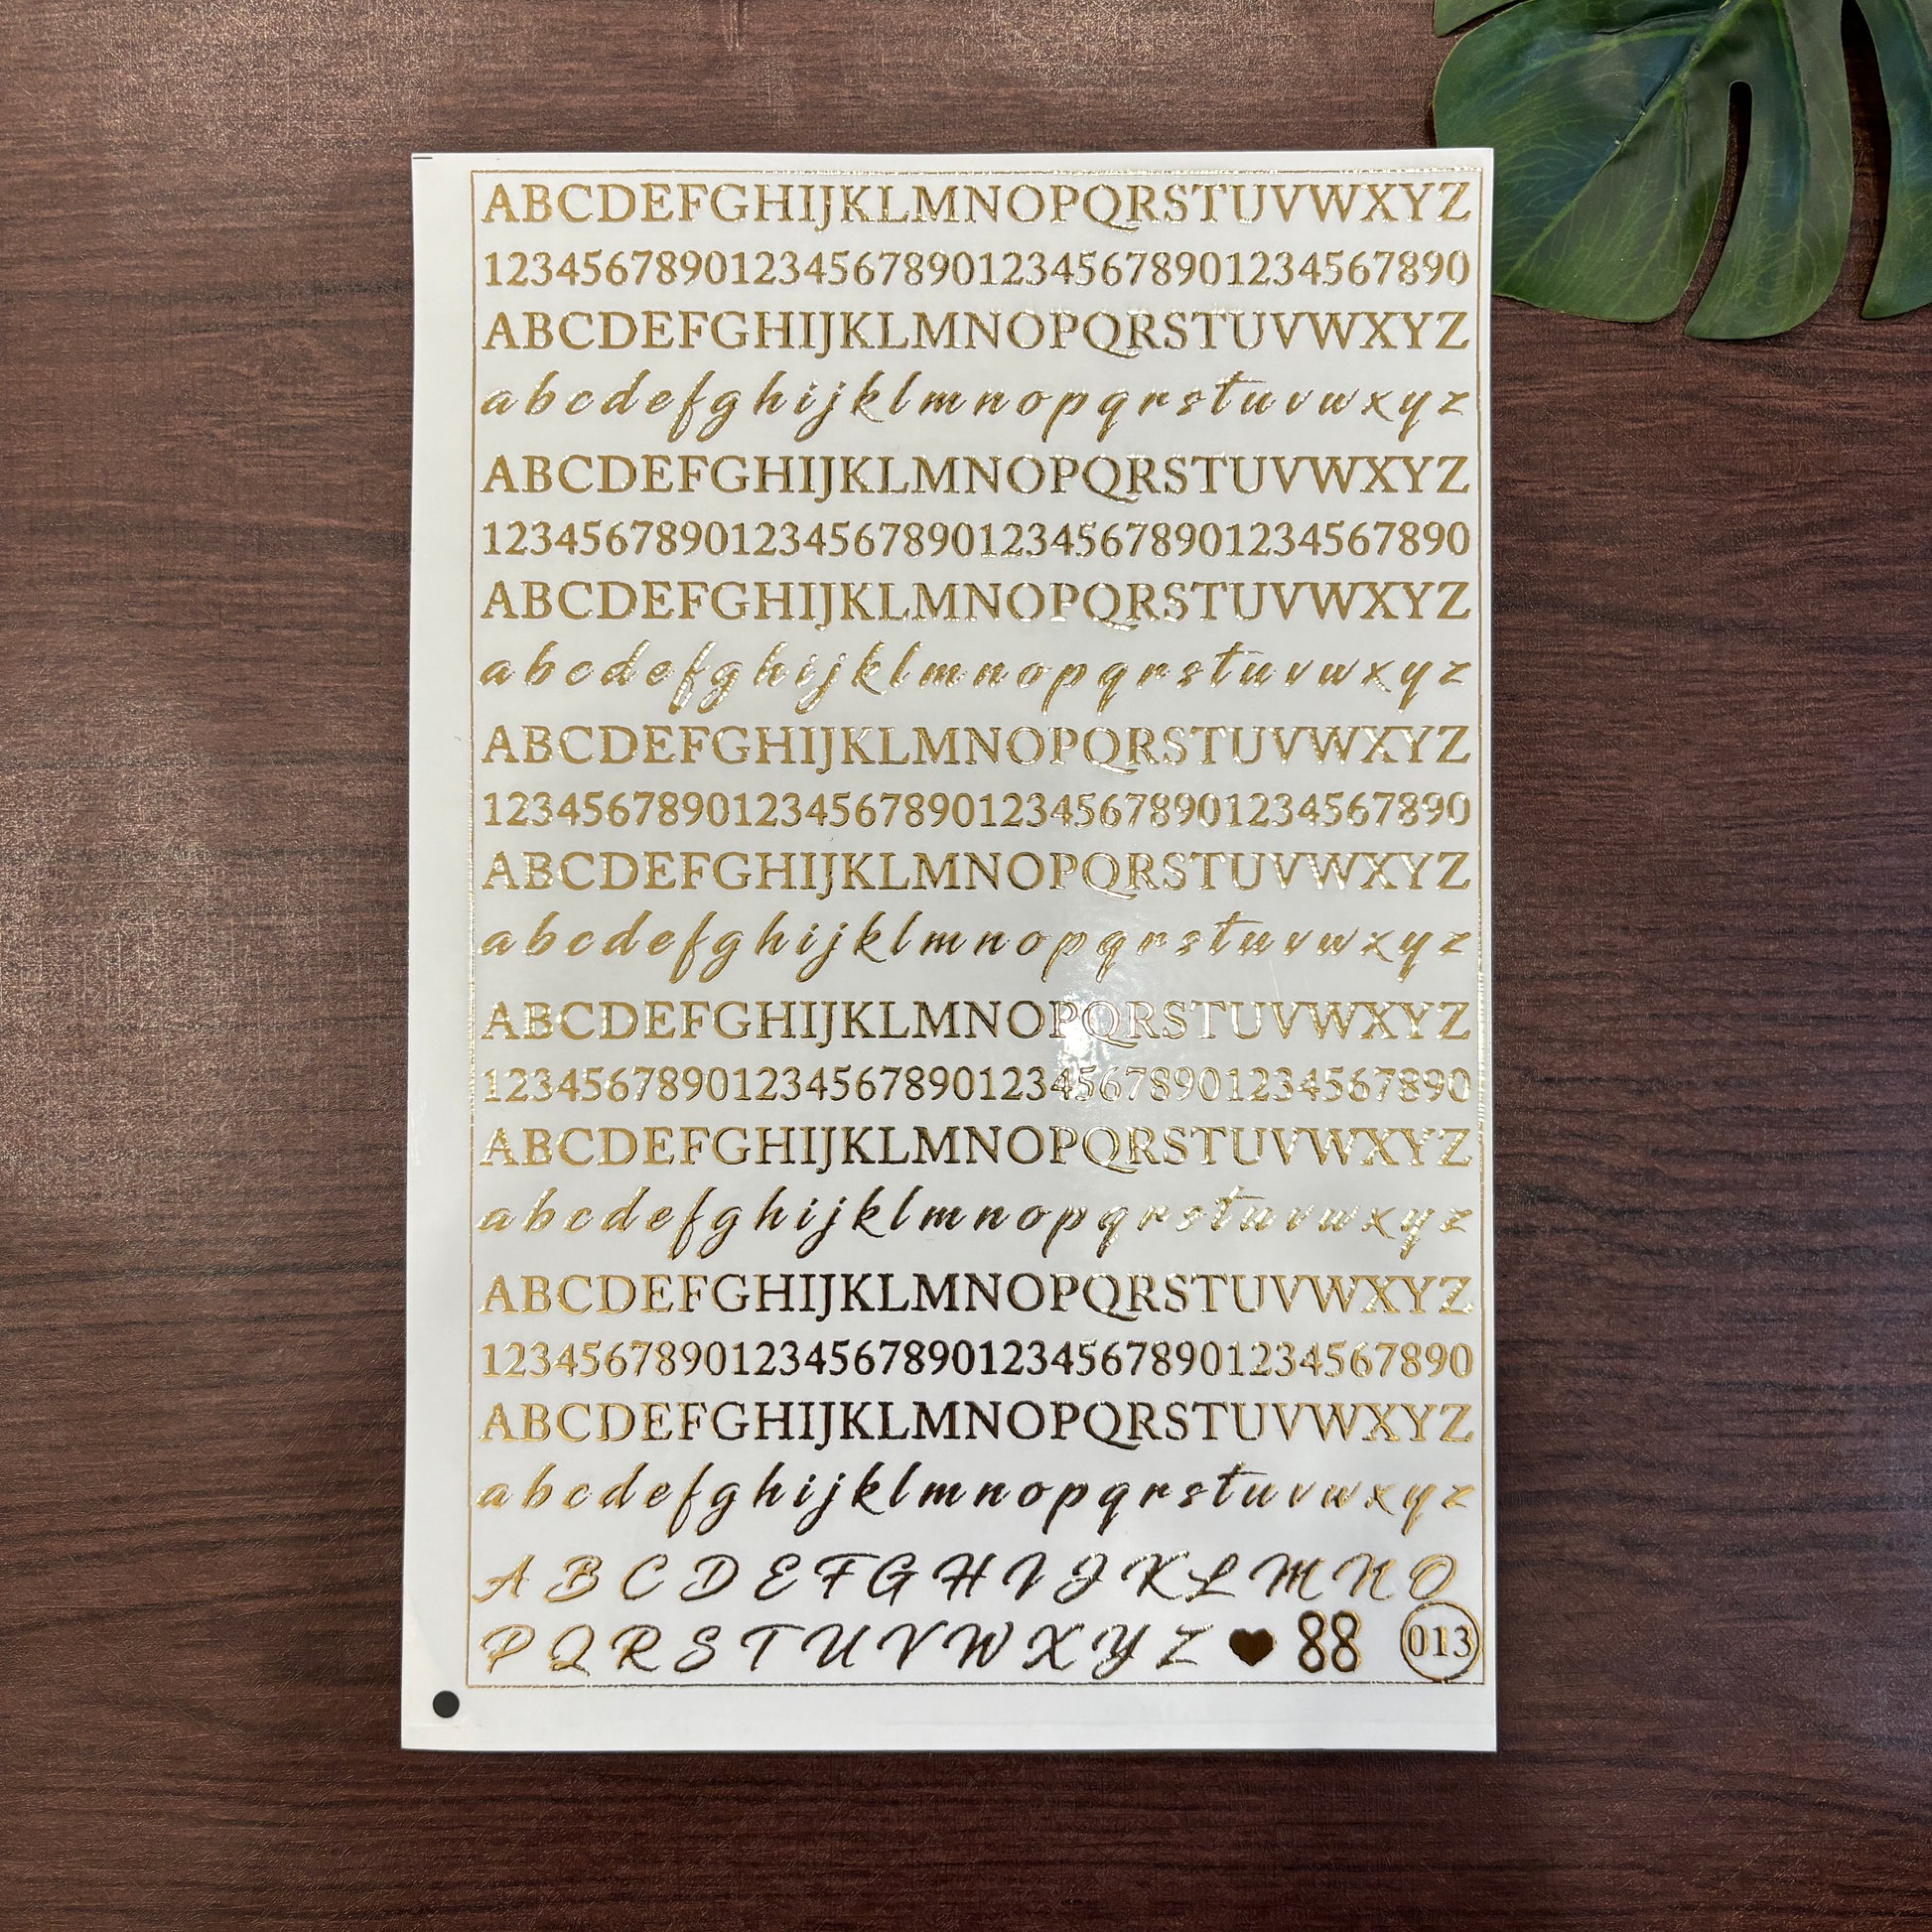 ABCDEFGHIJKLMNOPQRSTUVWXYZ
1234567890123456789012345678901234567890
ABCDEFGHIJKLMNOPQRSTUVWXYZ
abcdefghijklmnopqrstuvwxyz
ABCDEFGHIJKLMNOPQRSTUVWXYZ
1234567890123456789012345678901234567890
ABCDEFGHIJKLMNOPQRSTUVWXYZ
abcdefghijklmnopqrstuvwxyz
ABCDEFGHIJKLMNOPQRSTUVWXYZ
1234567890123456789012345678901234567890
ABCDEFGHIJKLMNOPQRSTUVWXYZ
abcdefghijklmnopqrstuvwxyz
ABCDEFGHIJKLMNOPQRSTUVWXYZ
1234567890123456789012345678901234567890
ABCDEFGHIJKLMNOPQRSTUVWXYZ
abcdefghijklmnopqrstuvwxyz
ABCDEFGHIJKLMNOPQRSTUVWXYZ
1234567890123456789012345678901234567890
ABCDEFGHIJKLMNOPQRSTUVWXYZ
abcdefghijklmnopqrstuvwxyz
A B C D E F G H I J K L M N O
P Q R S T U V W X Y Z ♥ 88 013